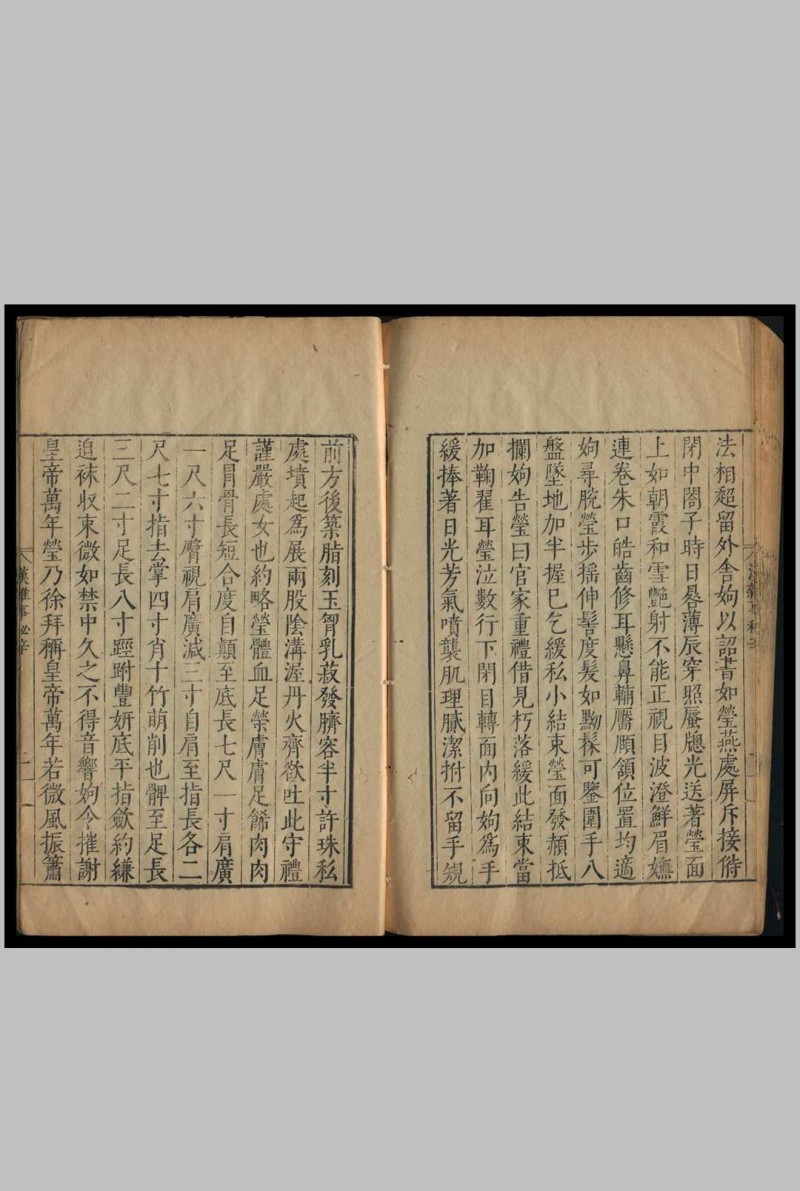 法相超留外舍姁以詔書如瑩燕處屏斥接侍
閉中閤子時日晷薄辰穿照蜃牕光送著瑩面
上如朝霞和雪艷射不能正視目波澄鮮眉嫵
連卷朱口皓齒修耳懸鼻輔靨頤頷位置均適
姁尋脫瑩步搖伸髻度髮如黝髹可鑒圍手八
盤墜地加半握已乞緩私小結束瑩面發赬抵
攔姁告瑩曰官家重禮借見朽落緩此結束當
加鞠翟耳瑩泣數行下閉目轉面內向姁為手
緩捧著日光芳氣噴襲肌理膩潔拊不留手規
前方後築脂刻玉胷乳菽發臍容半寸許珠私
處墳起爲展兩股陰溝渥丹火齊欲吐此守禮
謹嚴處女也約略瑩體血足榮膚膚足餙肉肉
足冐骨長短合度自顛至底長七尺一寸肩廣
一尺六寸臀視肩廣減三寸自肩至指長各二
尺七寸指去掌四寸肖十竹萌削也髀至足長
三尺二寸足長八寸踁跗豐妍底平指斂約縑
迫袜收束微如禁中久之不得音響姁令摧謝
皇帝萬年瑩乃徐拜稱皇帝萬年若微風振簫
漢雜事秘辛